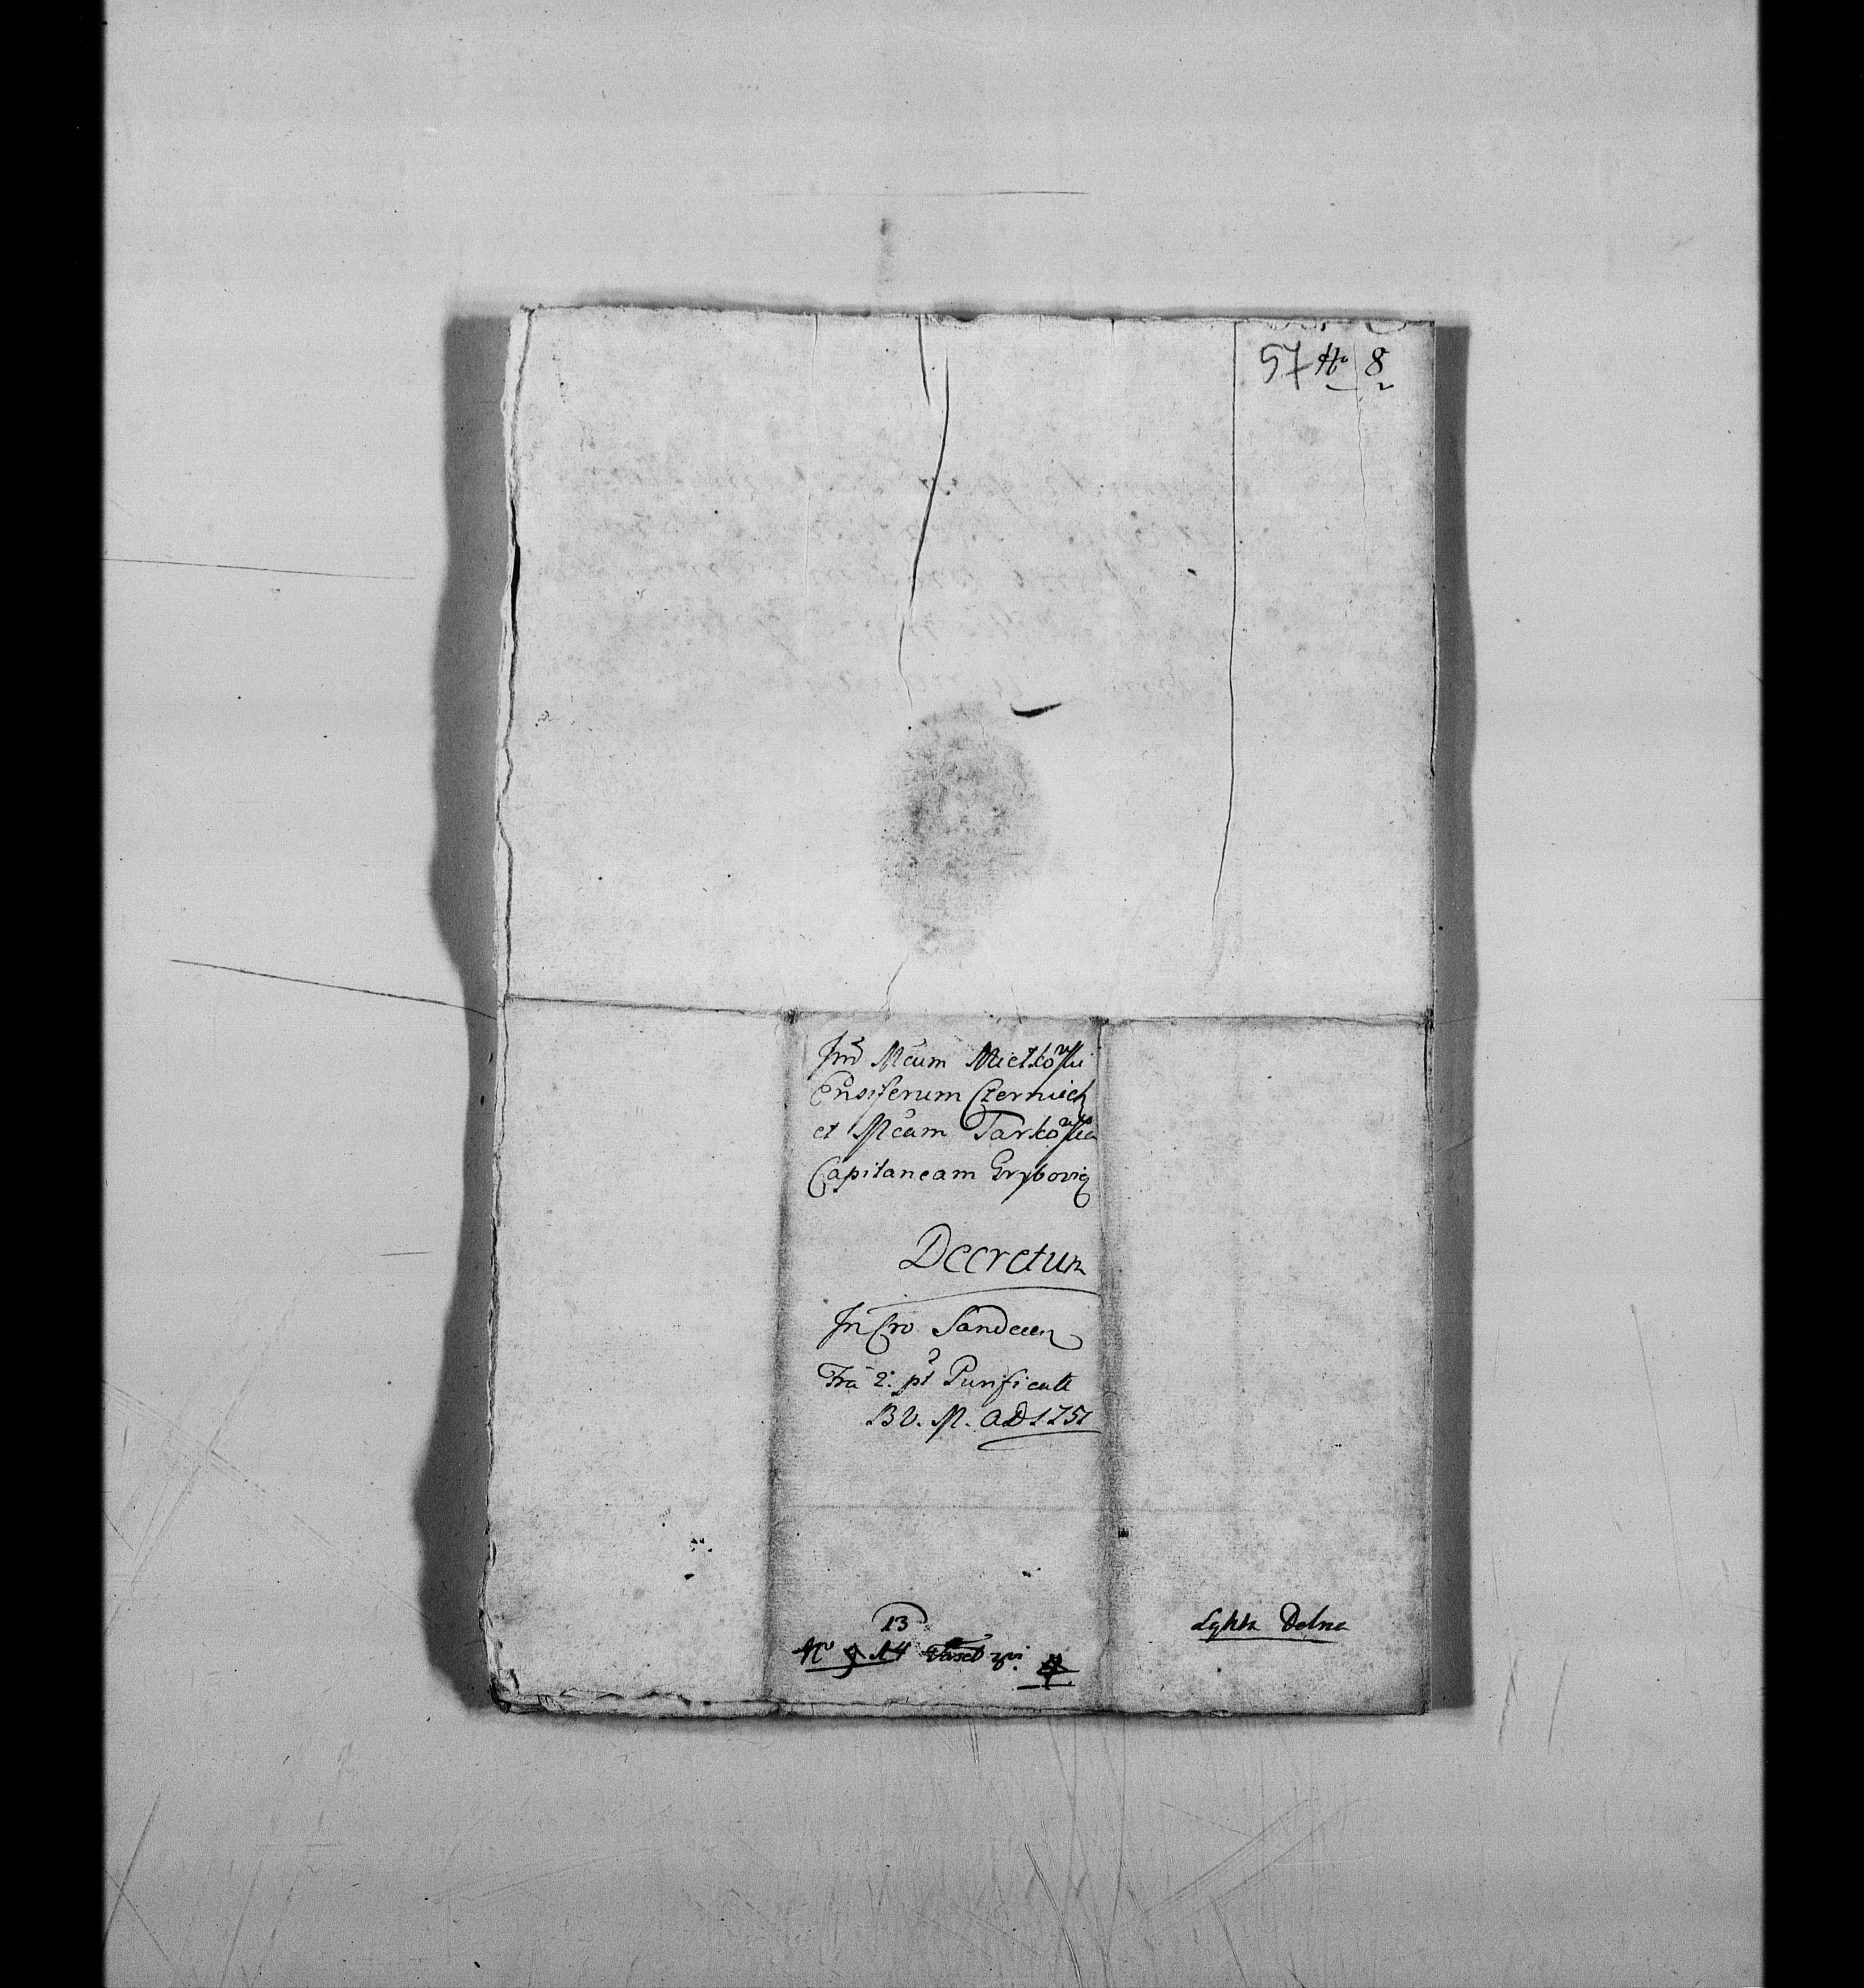 57 No 8
Int Mcum Mietkowski
Ensiferum Czerniech
et Mcam Tarkowska
Capitaneam Grybovie
Decretum
In Cro Sandecen
Fra 2. pt Purificate
B V. M. AD 1751
13
No 9 14
Łęka Dolna